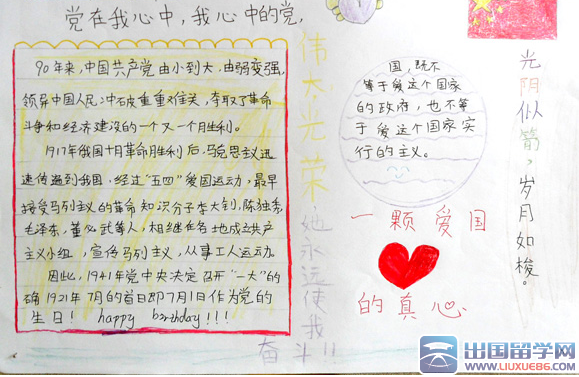 党在我心中，我心中的党，
90年来，中国共产党由小到大，由弱变强，
领导中国人民冲破重重难关，夺取了革命
斗争和经济建设的一个又一个月生利。
1917年俄国十月革命胜利后，马克思主义迅
速传遍到我国，经过“五四”爱国运动，最早
接受马列主义的革命知识分子李大钊，陈独秀
毛泽东，董必武等人，相继在各地成立共产
主义小组，宣传马列主义，从事工人运动。
因此，1941年党中央决定召开“一大”的
的确1921年7月的首日即7月1日作为党的
生日！ happy birthday！！！
伟大，光荣，她永远使我
奋斗！！
国，既不
等于爱这个国家
的政府，也不等
于爱这个国家实
行的主义。
一颗爱国
的真心
光阴似箭，岁月如梭。
出国留学网
WWW.LIUXUE86.COM